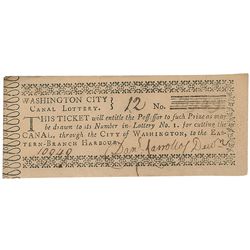 WASHINGTON CITY } 12 No.
CANAL LOTTERY.
THIS TICKET will entitle the Possessor to such Prize as may
be drawn to its Number in Lottery No. I. for cutting the
CANAL, through the CITY OF WASHINGTON, to the EAS-
TERN-BRANCH HARBOUR.
10949 Dan^l Carroll of Dudn